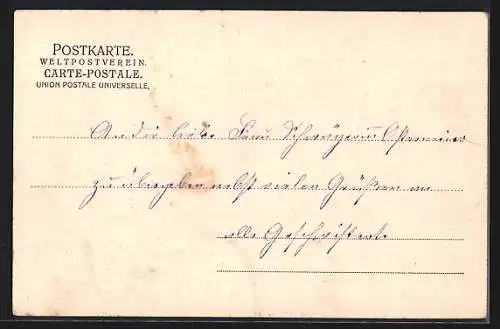 POSTKARTE.
WELTPOSTVEREIN.
CARTE-POSTALE.
UNION POSTALE UNIVERSELLE.
An die liebe Frau Schwägerin
zu übergeben nebst vielen Grüßen an
alle Geschwister